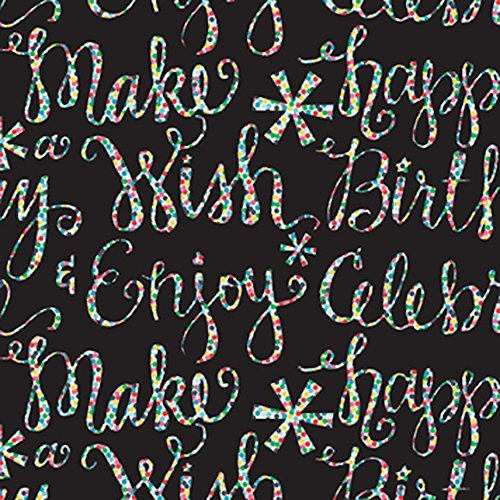 Enjoy Celeb
Make * happ
* a Wish Birt
y & Enjoy * Celebr
Make * happ
* a Wish Birt